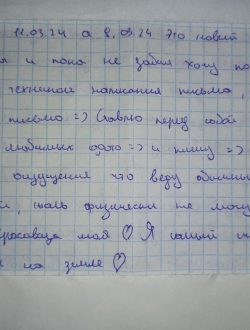 11.03.24 а 8.03.24 Это новый
я и пока не забыл хочу по
техникой написания письма,
письмо =) Ставлю перед собой
любимых фото =) и пишу =)
ощущения что веду обычный
й, жаль физически не могу
красавица моя ♡ Я самый сч
на земле ♡